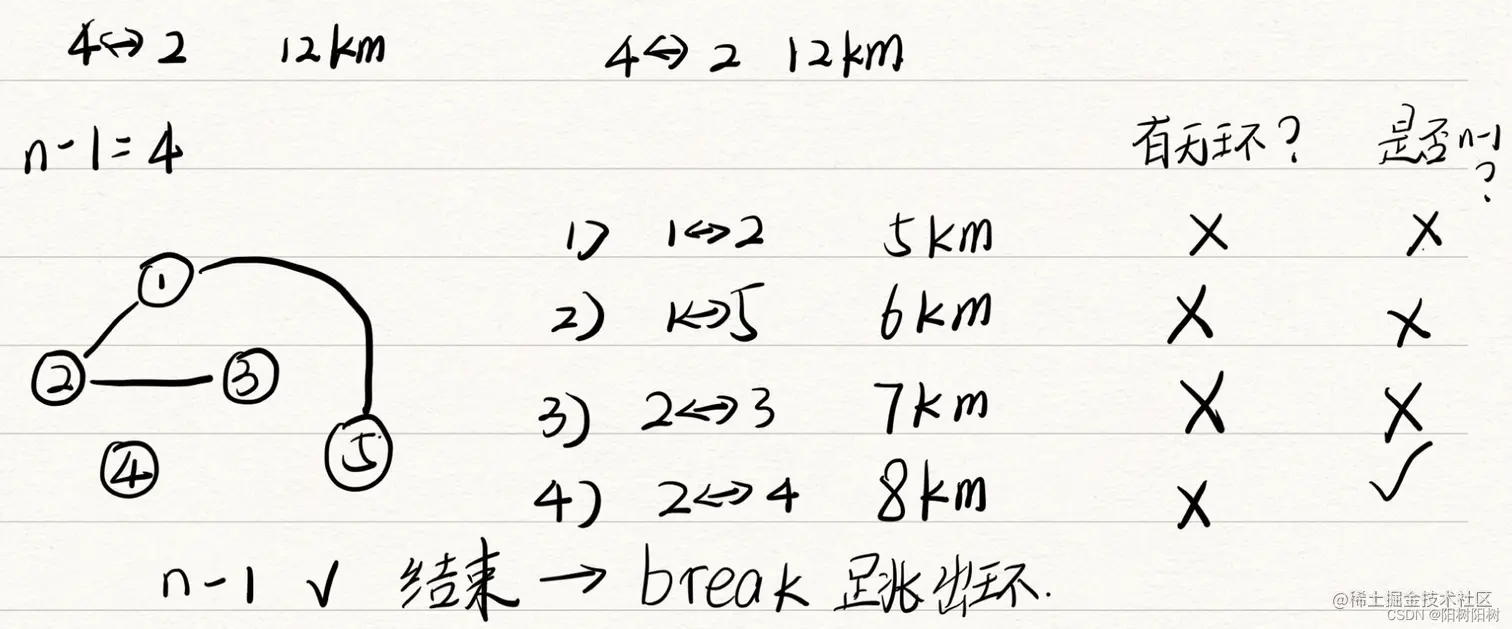 4↔2 12km 4↔2 12km
n-1=4
有无环? 是否n-1?
1) 1↔2 5km X X
2) 1↔5 6km X X
3) 2↔3 7km X X
4) 2↔4 8km X ✓
①
② ③
④ ⑤
n-1 ✓ 结束 → break 跳出环.
@稀土掘金技术社区
CSDN @阳树阳树